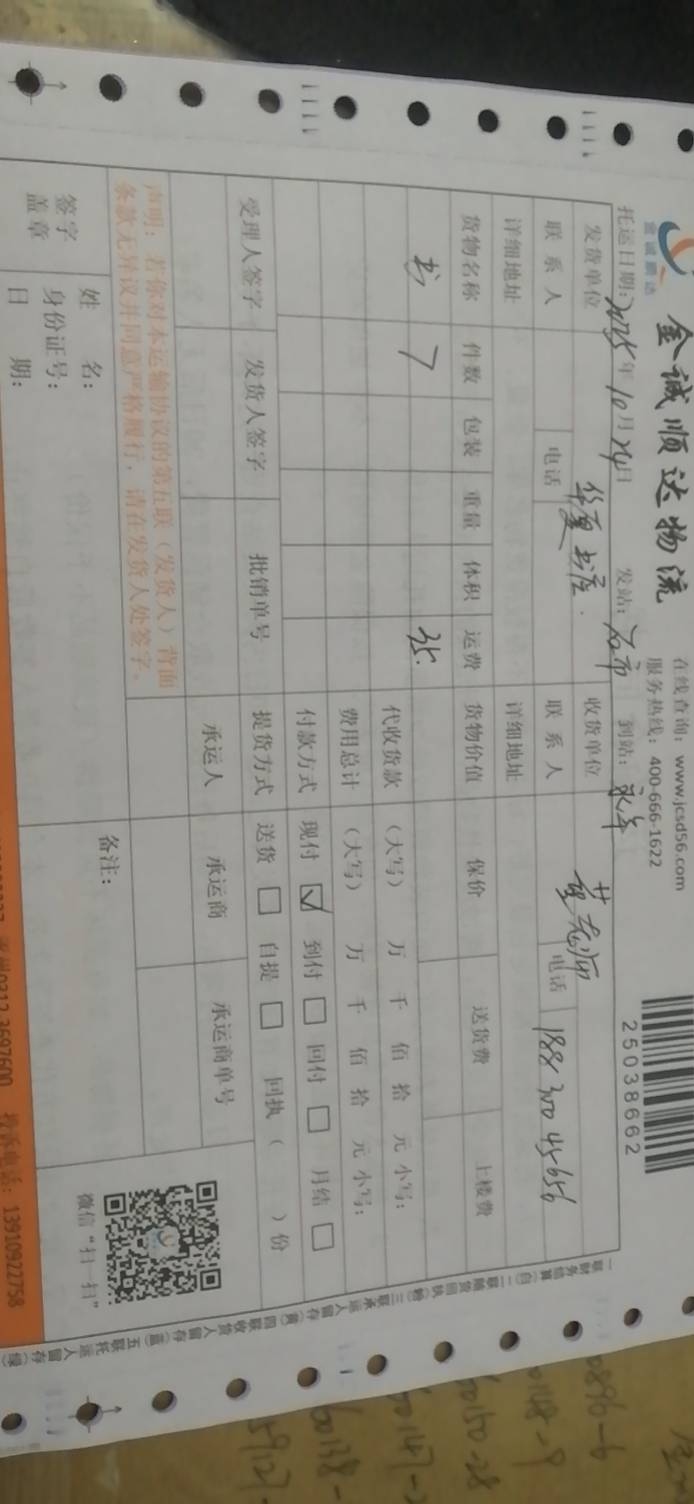 金诚顺达
金诚顺达物流
在线查询：www.jcsd56.com
服务热线：400-666-1622
25038662
托运日期：2025年10月24日 发站：石市 到站：永年
发货单位 华夏书店 收货单位
联系人 电话 联系人 老师 电话 18830045656
详细地址 详细地址
货物名称 件数 包装 重量 体积 运费 货物价值 保价 送货费 上楼费
书 7 35.
代收货款 （大写） 万 千 佰 拾 元 小写：
费用总计 （大写） 万 千 佰 拾 元 小写：
付款方式 现付 ☑ 到付 □ 回付 □ 月结 □
受理人签字 发货人签字 批销单号 提货方式 送货 □ 自提 □ 回执（ ）份
承运人 承运商 承运商单号
声明：若你对本运输协议的第五联（发货人）背面
条款无异议并同意严格履行，请在发货人处签字。
签字
盖章
姓 名：
身份证号：
日 期：
备注：
微信“扫一扫”
0312-3697600 投诉电话：13910922758
一联财务结算（白） 二联随货回执（粉） 三联承运人留存（黄） 四联收货人留存（蓝） 五联托运人留存（绿）
0896-6
00148-9
60150-28
00147-
60138-
59127-